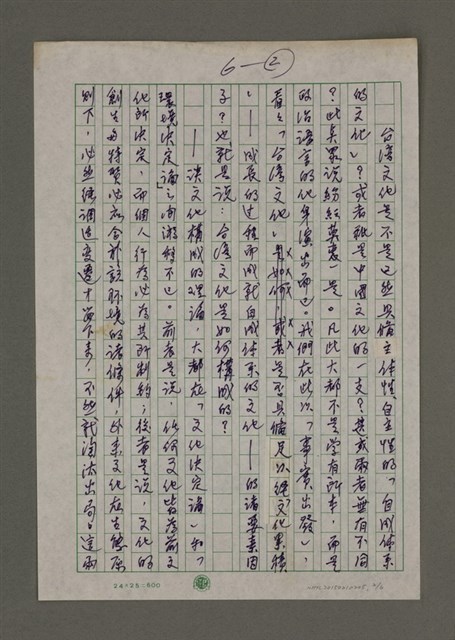 6—②
台灣文化是不是已然具備主體性自主性的「自成体系
的文化」？或者祇是中國文化的一支？甚或兩者無有不同
？此真眾說紛紜莫衷一是。凡此大都不是學有所本，而是
政治語言的化身演出而已。我們在此以「事實出發」，
看看「台灣文化」是如何，或者是否具備足以經「文化累積
——成長的过程而成就自成体系的文化——的諸要素因
子？也就是說：台灣文化是如何構成的？
——談文化構成的理論，大都在「文化決定論」和「
環境決定論」之間游移不已。前者是說，任何文化皆為前文
化所決定，而個人行為必為其所制約；後者是說，文化的
創生與特質必在合於該環境的諸條件，外來文化在生態原
則下，必然經調适变遷才留下來，不然就淘汰出局。這兩
24×25=600